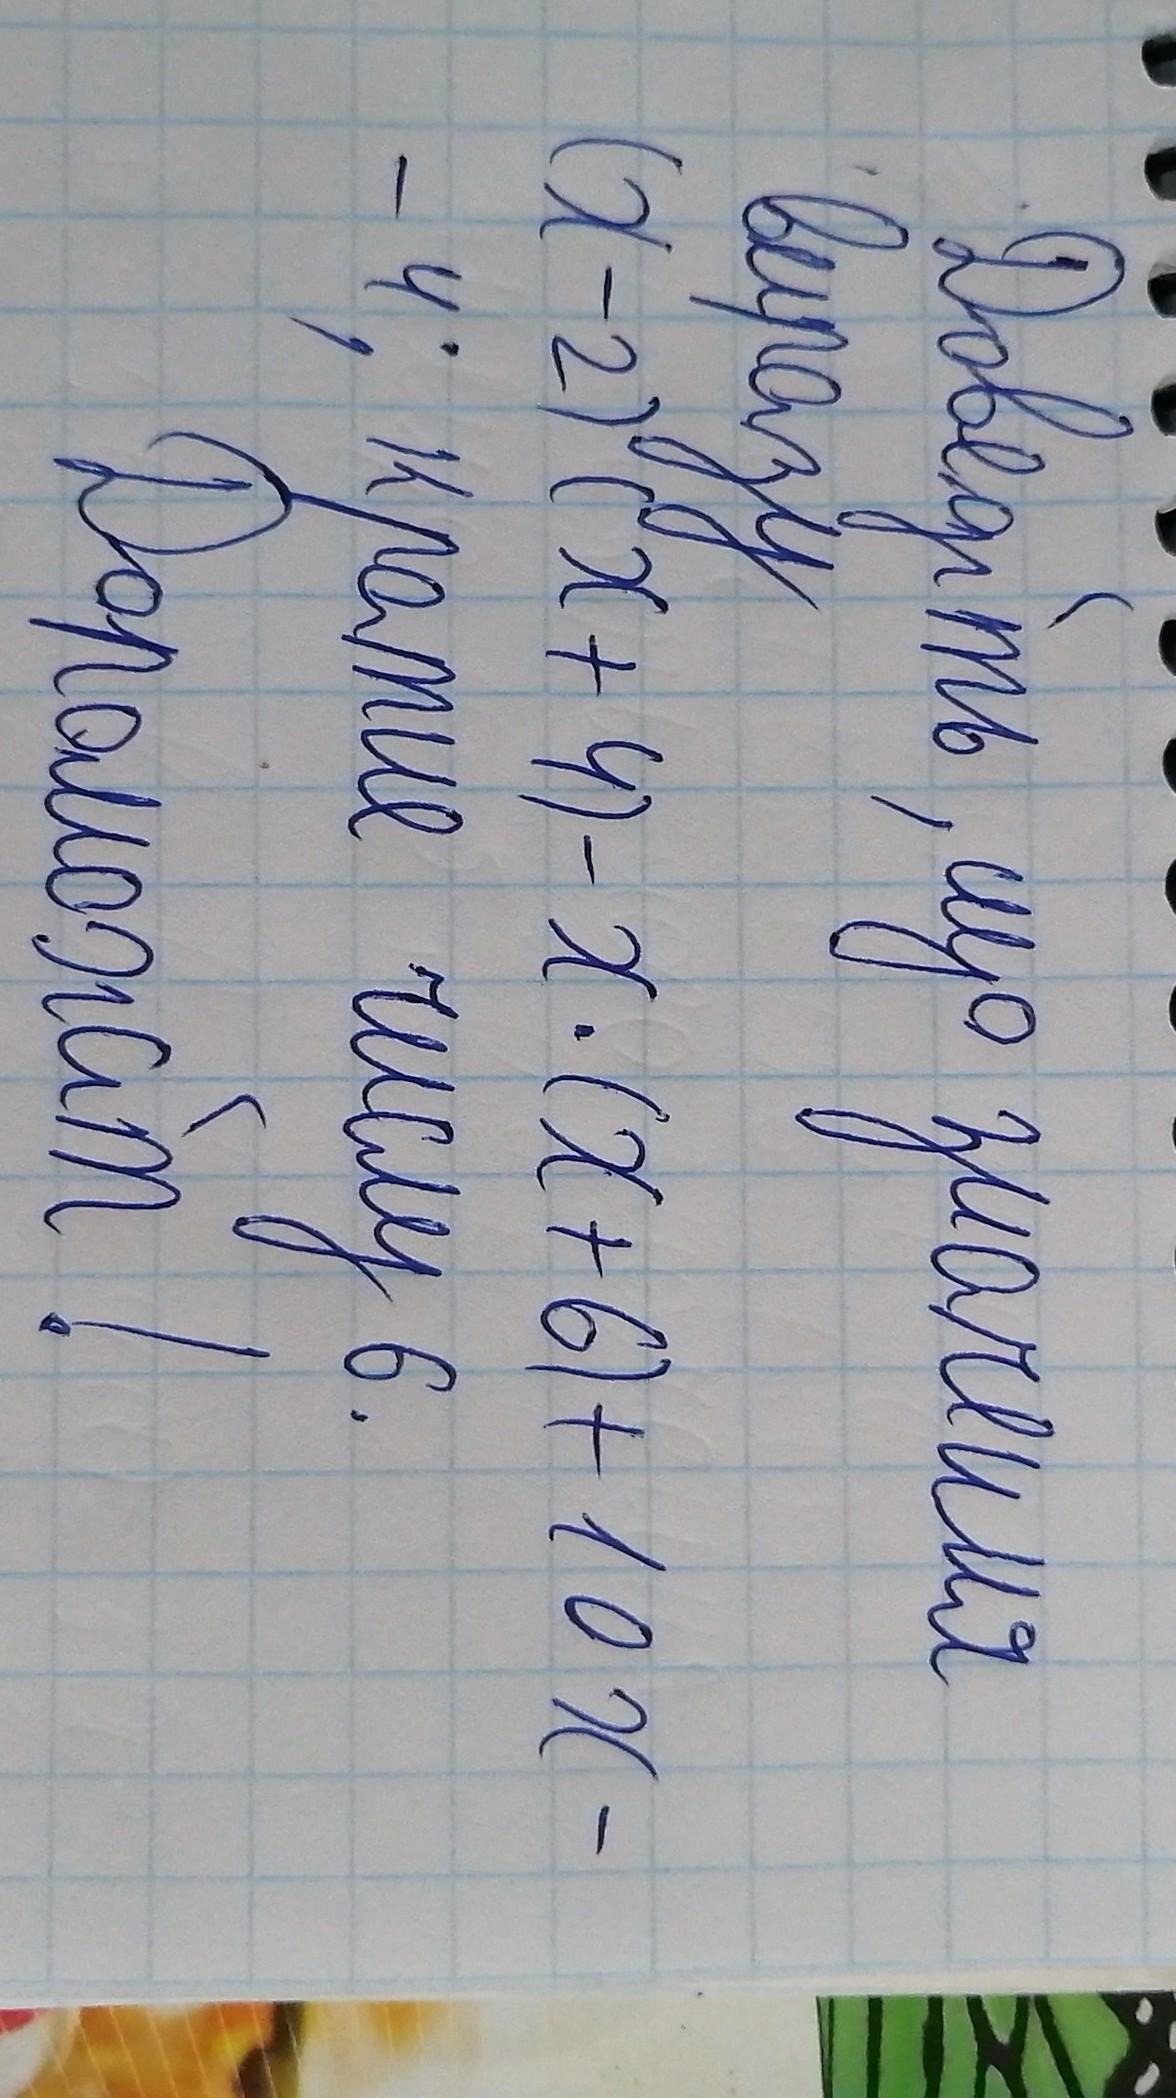 Доведіть, що значення
виразу
(x-2)(x+4)-x·(x+6)+10x-
-4; кратне числу 6.
Допоможіт!